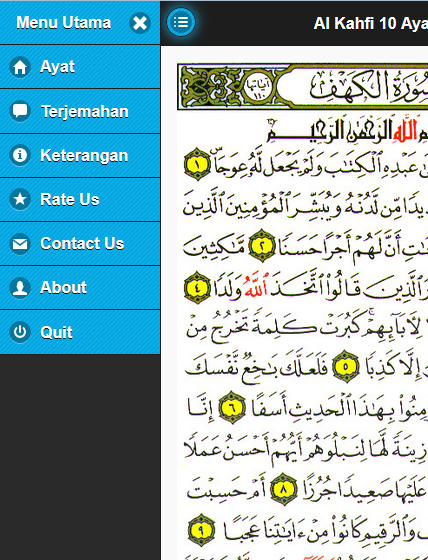 Menu Utama
Al Kahfi 10 Aya
Ayat
Terjemahan
Keterangan
Rate Us
Contact Us
About
Quit
سُورَةُ الكَهْفِ
اللَّهِ الرَّحْمَٰنِ الرَّحِيمِ
عَبْدِهِ الْكِتَٰبَ وَلَمْ يَجْعَل لَّهُ عِوَجَا ١
مِّن لَّدُنْهُ وَيُبَشِّرَ الْمُؤْمِنِينَ الَّذِينَ
أَنَّ لَهُمْ أَجْرًا حَسَنًا ٢ مَّٰكِثِينَ
الَّذِينَ قَالُوا اتَّخَذَ اللَّهُ وَلَدًا ٤
لِآبَائِهِمْ كَبُرَتْ كَلِمَةً تَخْرُجُ مِنْ
إِلَّا كَذِبًا ٥ فَلَعَلَّكَ بَٰخِعٌ نَّفْسَكَ
بِهَٰذَا الْحَدِيثِ أَسَفًا ٦ إِنَّا
زِينَةً لَّهَا لِنَبْلُوَهُمْ أَيُّهُمْ أَحْسَنُ عَمَلًا
عَلَيْهَا صَعِيدًا جُرُزًا ٨ أَمْ حَسِبْتَ
وَالرَّقِيمِ كَانُوا مِنْ ءَايَٰتِنَا عَجَبًا ٩